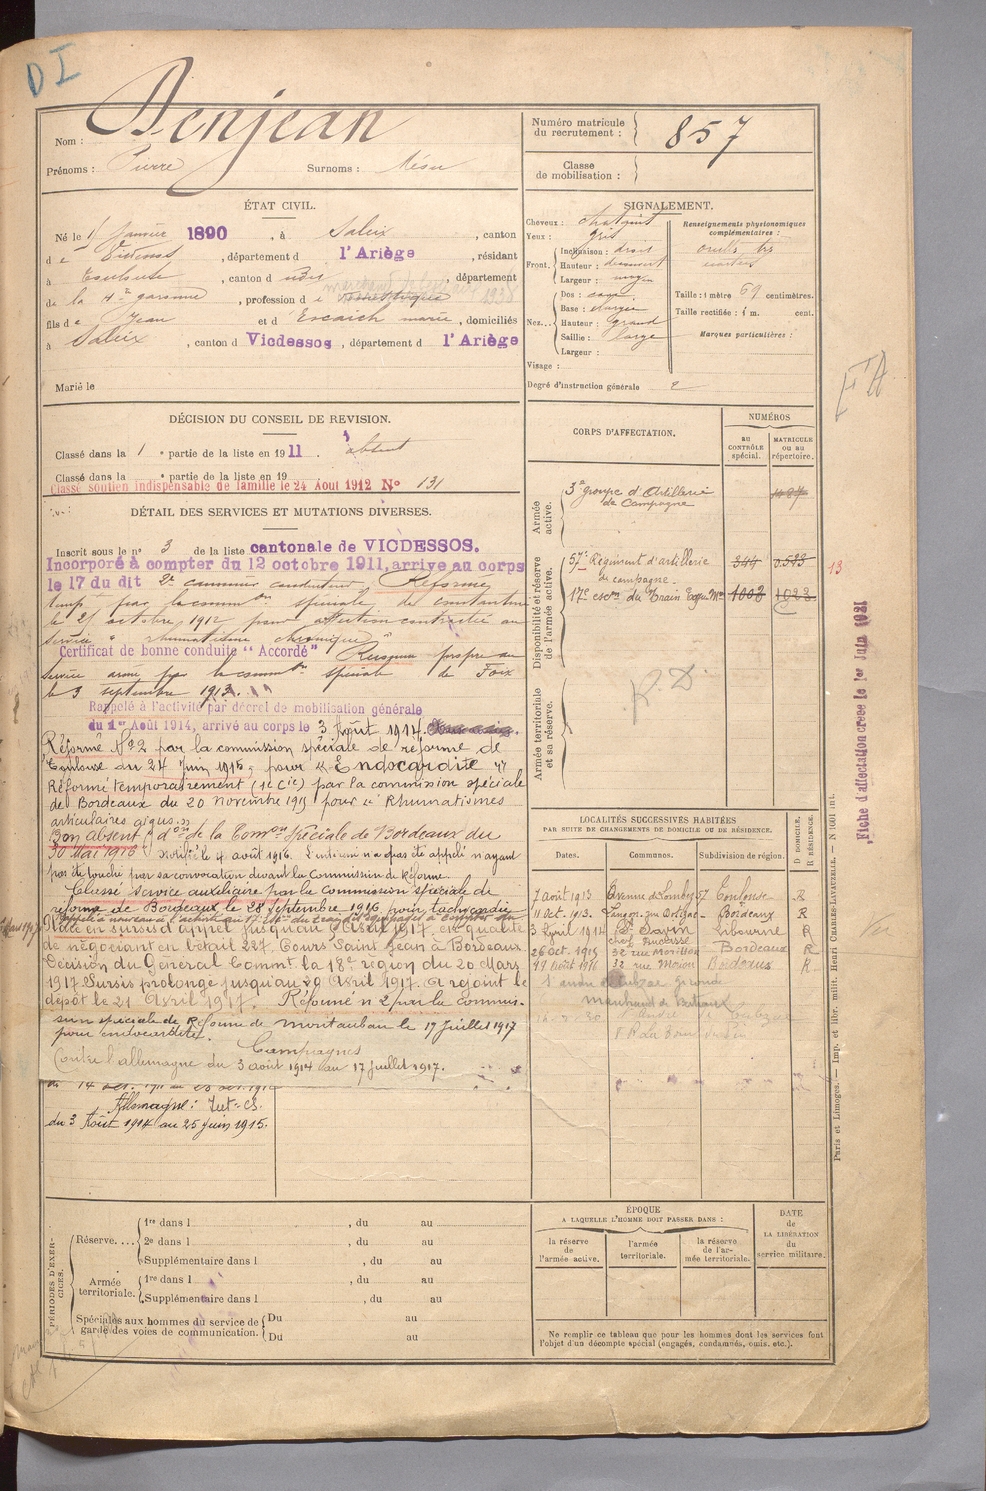 DI
Nom : Denjean
Prénoms : Pierre Surnoms :
Numéro matricule du recrutement : 857
Classe de mobilisation :
ÉTAT CIVIL.
Né le 1 Janvier 1890, à Saleix, canton
de Vicdessos, département d l'Ariège, résidant
à Toulouse, canton d udit, département
de la Hte garonne, profession d
1938
fils de Jean et d Escaich marie, domiciliés
à Saleix, canton d Vicdessos, département d l'Ariège
Marié le
SIGNALEMENT.
Cheveux : chatain
Yeux : gris
Front. Inclinaison : droit
Hauteur : découvert
Largeur : moyen
Nez. Dos : cave
Base : élargie
Hauteur : grand
Saillie : large
Largeur :
Visage :
Degré d'instruction générale 2
Renseignements physionomiques complémentaires :
oreilles très
Taille : 1 mètre 69 centimètres.
Taille rectifiée : 1 m. cent.
Marques particulières :
DÉCISION DU CONSEIL DE REVISION.
Classé dans la 1 e partie de la liste en 1911. absent
Classé dans la e partie de la liste en 19
Classé soutien indispensable de famille le 24 Aout 1912 No 131
DÉTAIL DES SERVICES ET MUTATIONS DIVERSES.
Inscrit sous le no 3 de la liste cantonale de VICDESSOS.
Incorporé à compter du 12 octobre 1911, arrive au corps
le 17 du dit 2e cannonier conducteur. Réformé
temp. par la comm.on spéciale de constantine
le 25 octobre 1912 pour affection contractée au
service "rhumatisme chronique"
Certificat de bonne conduite "Accordé" Reconnu propre au
service armé par la comm.on spéciale de Foix
le 3 septembre 1913.
Rappelé à l'activité par décret de mobilisation générale
du 1er Août 1914, arrivé au corps le 3 Août 1914.
Réformé No 2 par la commission spéciale de réforme de
Toulouse du 24 Juin 1915, pour "Endocardite"
Réformé temporairement (1e Cie) par la commission spéciale
de Bordeaux du 20 novembre 1915 pour "Rhumatismes
articulaires aigus."
Bon absent don de la Comon Spéciale de Bordeaux du
30 Mai 1916 notifié le 4 août 1916. L'intéressé n'a pas été appelé n'ayant
pas été touché par sa convocation devant la Commission de Réforme.
Classé service auxiliaire par la Commission spéciale de
réforme de Bordeaux le 28 Septembre 1916 pour tachycardie
Rappelé à nouveau à l'activité au 17e
en sursis d'appel jusqu'au 1917, en qualité
de négociant en bétail 227, Cours Saint Jean à Bordeaux.
Décision du Général Commt. la 18e région du 20 Mars
1917. Sursis prolongé jusqu'au 29 Avril 1917. A rejoint le
dépôt le 21 Avril 1917. Réformé n 2 par la commis-
sion spéciale de Réforme de montauban le 17 juillet 1917
pour endocardite.
Campagnes
Contre l'allemagne du 3 août 1914 au 17 juillet 1917.
Allemagne : Int. CS.
du 3 Août 1914 au 25 juin 1915.
CORPS D'AFFECTATION.
NUMÉROS
AU CONTRÔLE spécial.
MATRICULE OU AU répertoire.
Armée active.
3e groupe d'Artillerie de Campagne
Disponibilité et réserve de l'armée active.
57e Régiment d'artillerie de campagne. 344 0.523 13
17e escon du Train Equ. Mre 1003 1023
Armée territoriale et sa réserve.
R.D.
LOCALITÉS SUCCESSIVES HABITÉES
PAR SUITE DE CHANGEMENTS DE DOMICILE OU DE RÉSIDENCE.
Dates. Communes. Subdivision de région. D. DOMICILE. R. RÉSIDENCE.
7 août 1913 Avenue de Lombez 57 Toulouse R
11 Oct. 1913. Bordeaux R
3 Avril 1914 St Savin Libourne R
26 Oct. 1915 32 rue Bordeaux R
19 Août 1916 32 rue Bordeaux R
Gironde
marchand de Bestiaux
Fiche d'affectation créée le 1er Juin 1921
Paris et Limoges. — Imp. et libr. milit. Henri CHARLES-LAVAUZELLE. — N 1001 int.
PÉRIODES D'EXERCICES.
Réserve.... 1re dans l , du au
2e dans l , du au
Supplémentaire dans l , du au
Armée territoriale. 1re dans l , du au
Supplémentaire dans l , du au
Spéciales aux hommes du service de garde des voies de communication. Du au
Du au
ÉPOQUE
A LAQUELLE L'HOMME DOIT PASSER DANS :
la réserve de l'armée active.
l'armée territoriale.
la réserve de l'armée territoriale.
DATE de LA LIBÉRATION du service militaire.
Ne remplir ce tableau que pour les hommes dont les services font l'objet d'un décompte spécial (engagés, condamnés, omis, etc.).